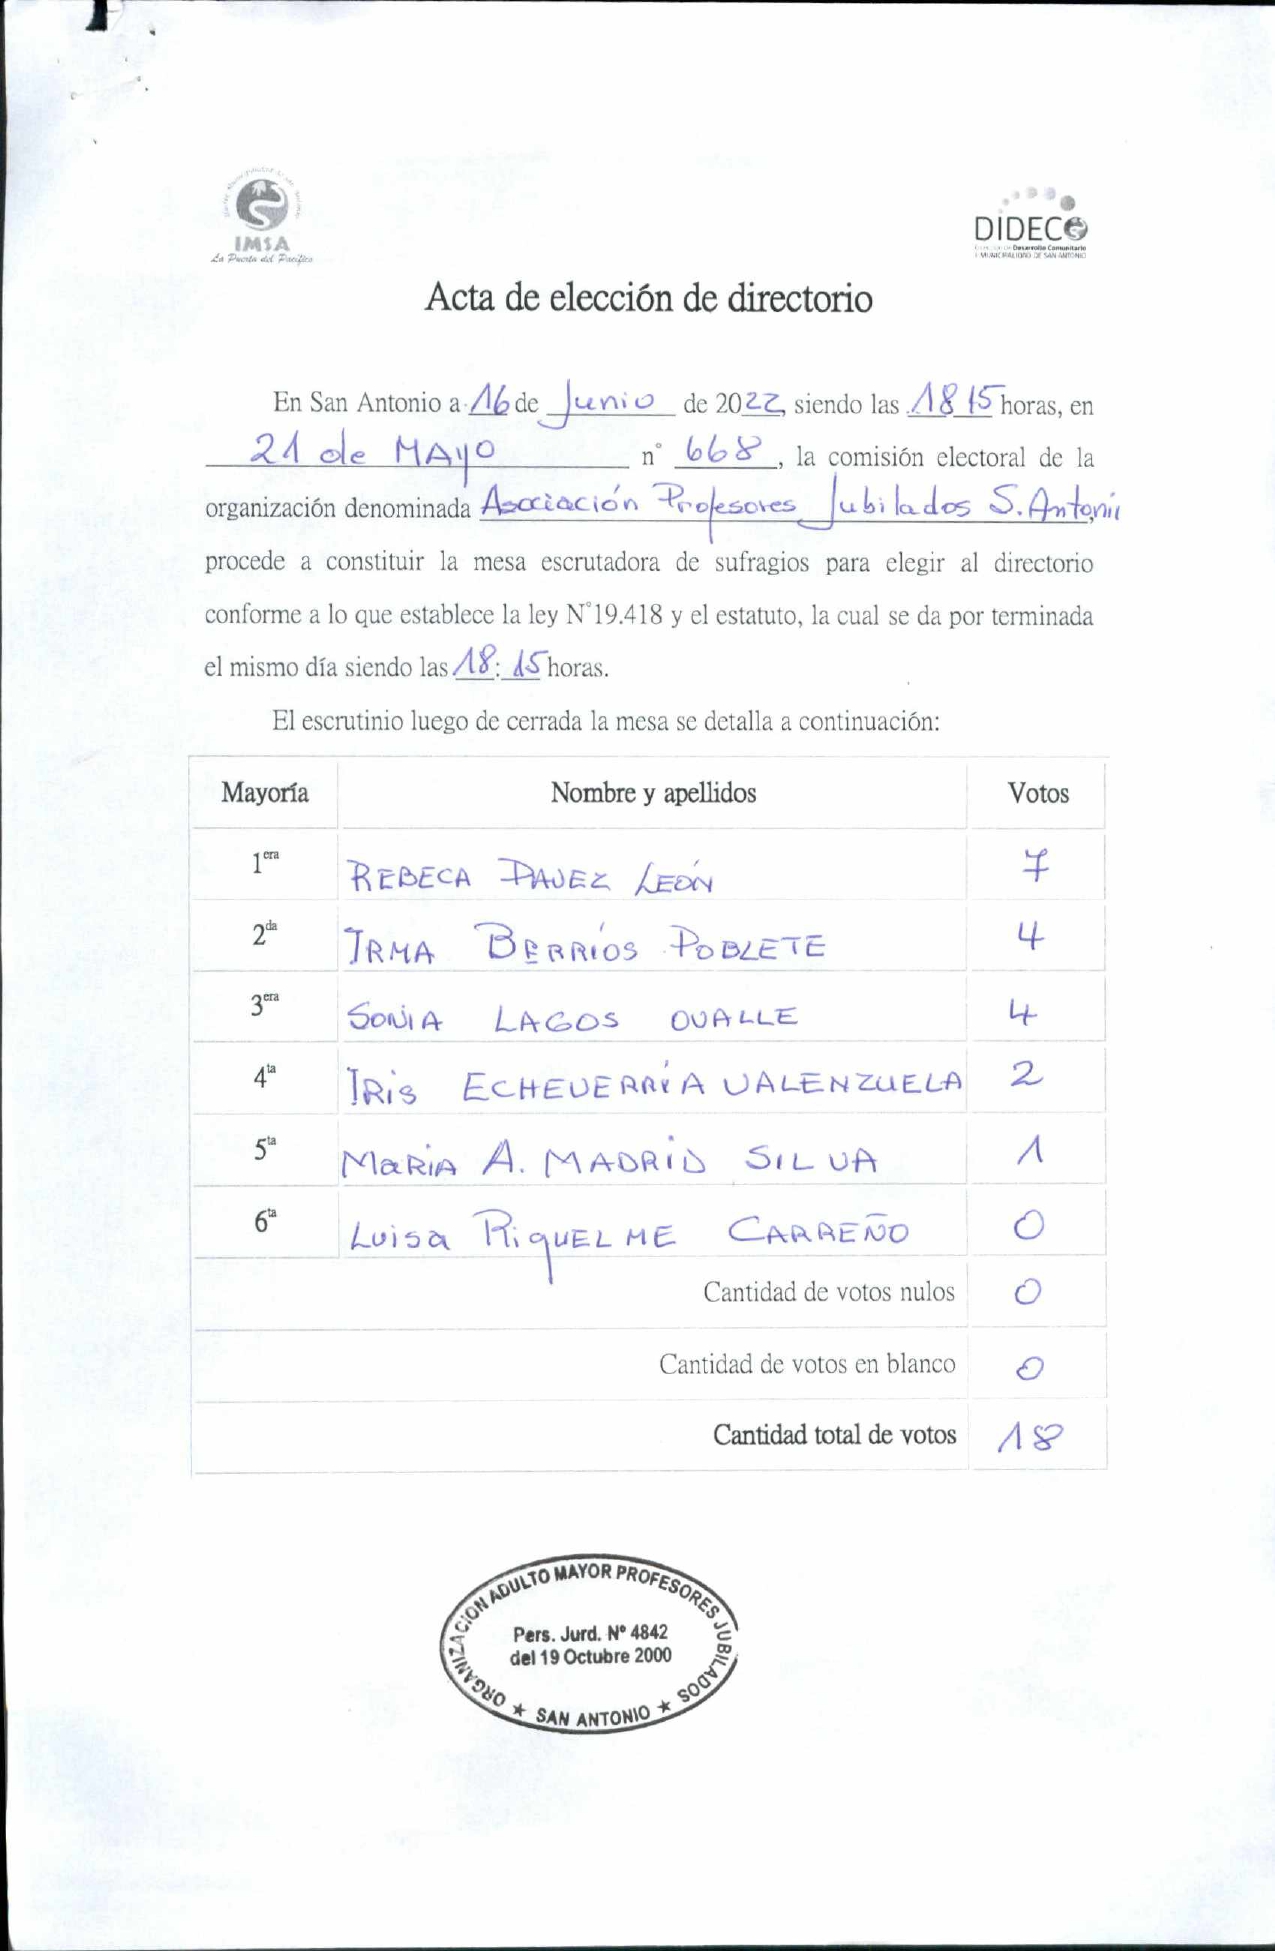 IMSA
La Puerta del Pacífico
DIDECO
Desarrollo Comunitario
I. MUNICIPALIDAD DE SAN ANTONIO
Acta de elección de directorio
En San Antonio a 16 de Junio de 2022, siendo las 18 15 horas, en
21 de MAYO n° 668, la comisión electoral de la
organización denominada Asociación Profesores Jubilados S. Antoni
procede a constituir la mesa escrutadora de sufragios para elegir al directorio
conforme a lo que establece la ley N°19.418 y el estatuto, la cual se da por terminada
el mismo día siendo las 18: 15 horas.
El escrutinio luego de cerrada la mesa se detalla a continuación:
Mayoría Nombre y apellidos Votos
1era REBECA PAVEZ LEÓN 7
2da IRMA BERRÍOS POBLETE 4
3era SONIA LAGOS OVALLE 4
4ta IRIS ECHEVERRÍA VALENZUELA 2
5ta MARIA A. MADRID SILVA 1
6ta LUISA RIQUELME CARREÑO 0
Cantidad de votos nulos 0
Cantidad de votos en blanco 0
Cantidad total de votos 18
ORGANIZACION ADULTO MAYOR PROFESORES JUBILADOS
Pers. Jurd. Nº 4842
del 19 Octubre 2000
★ SAN ANTONIO ★